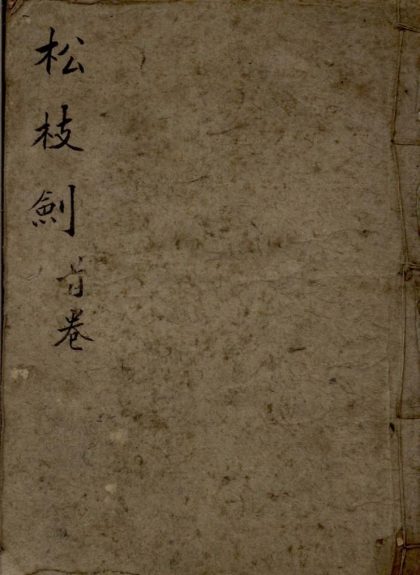 松枝劍 卷